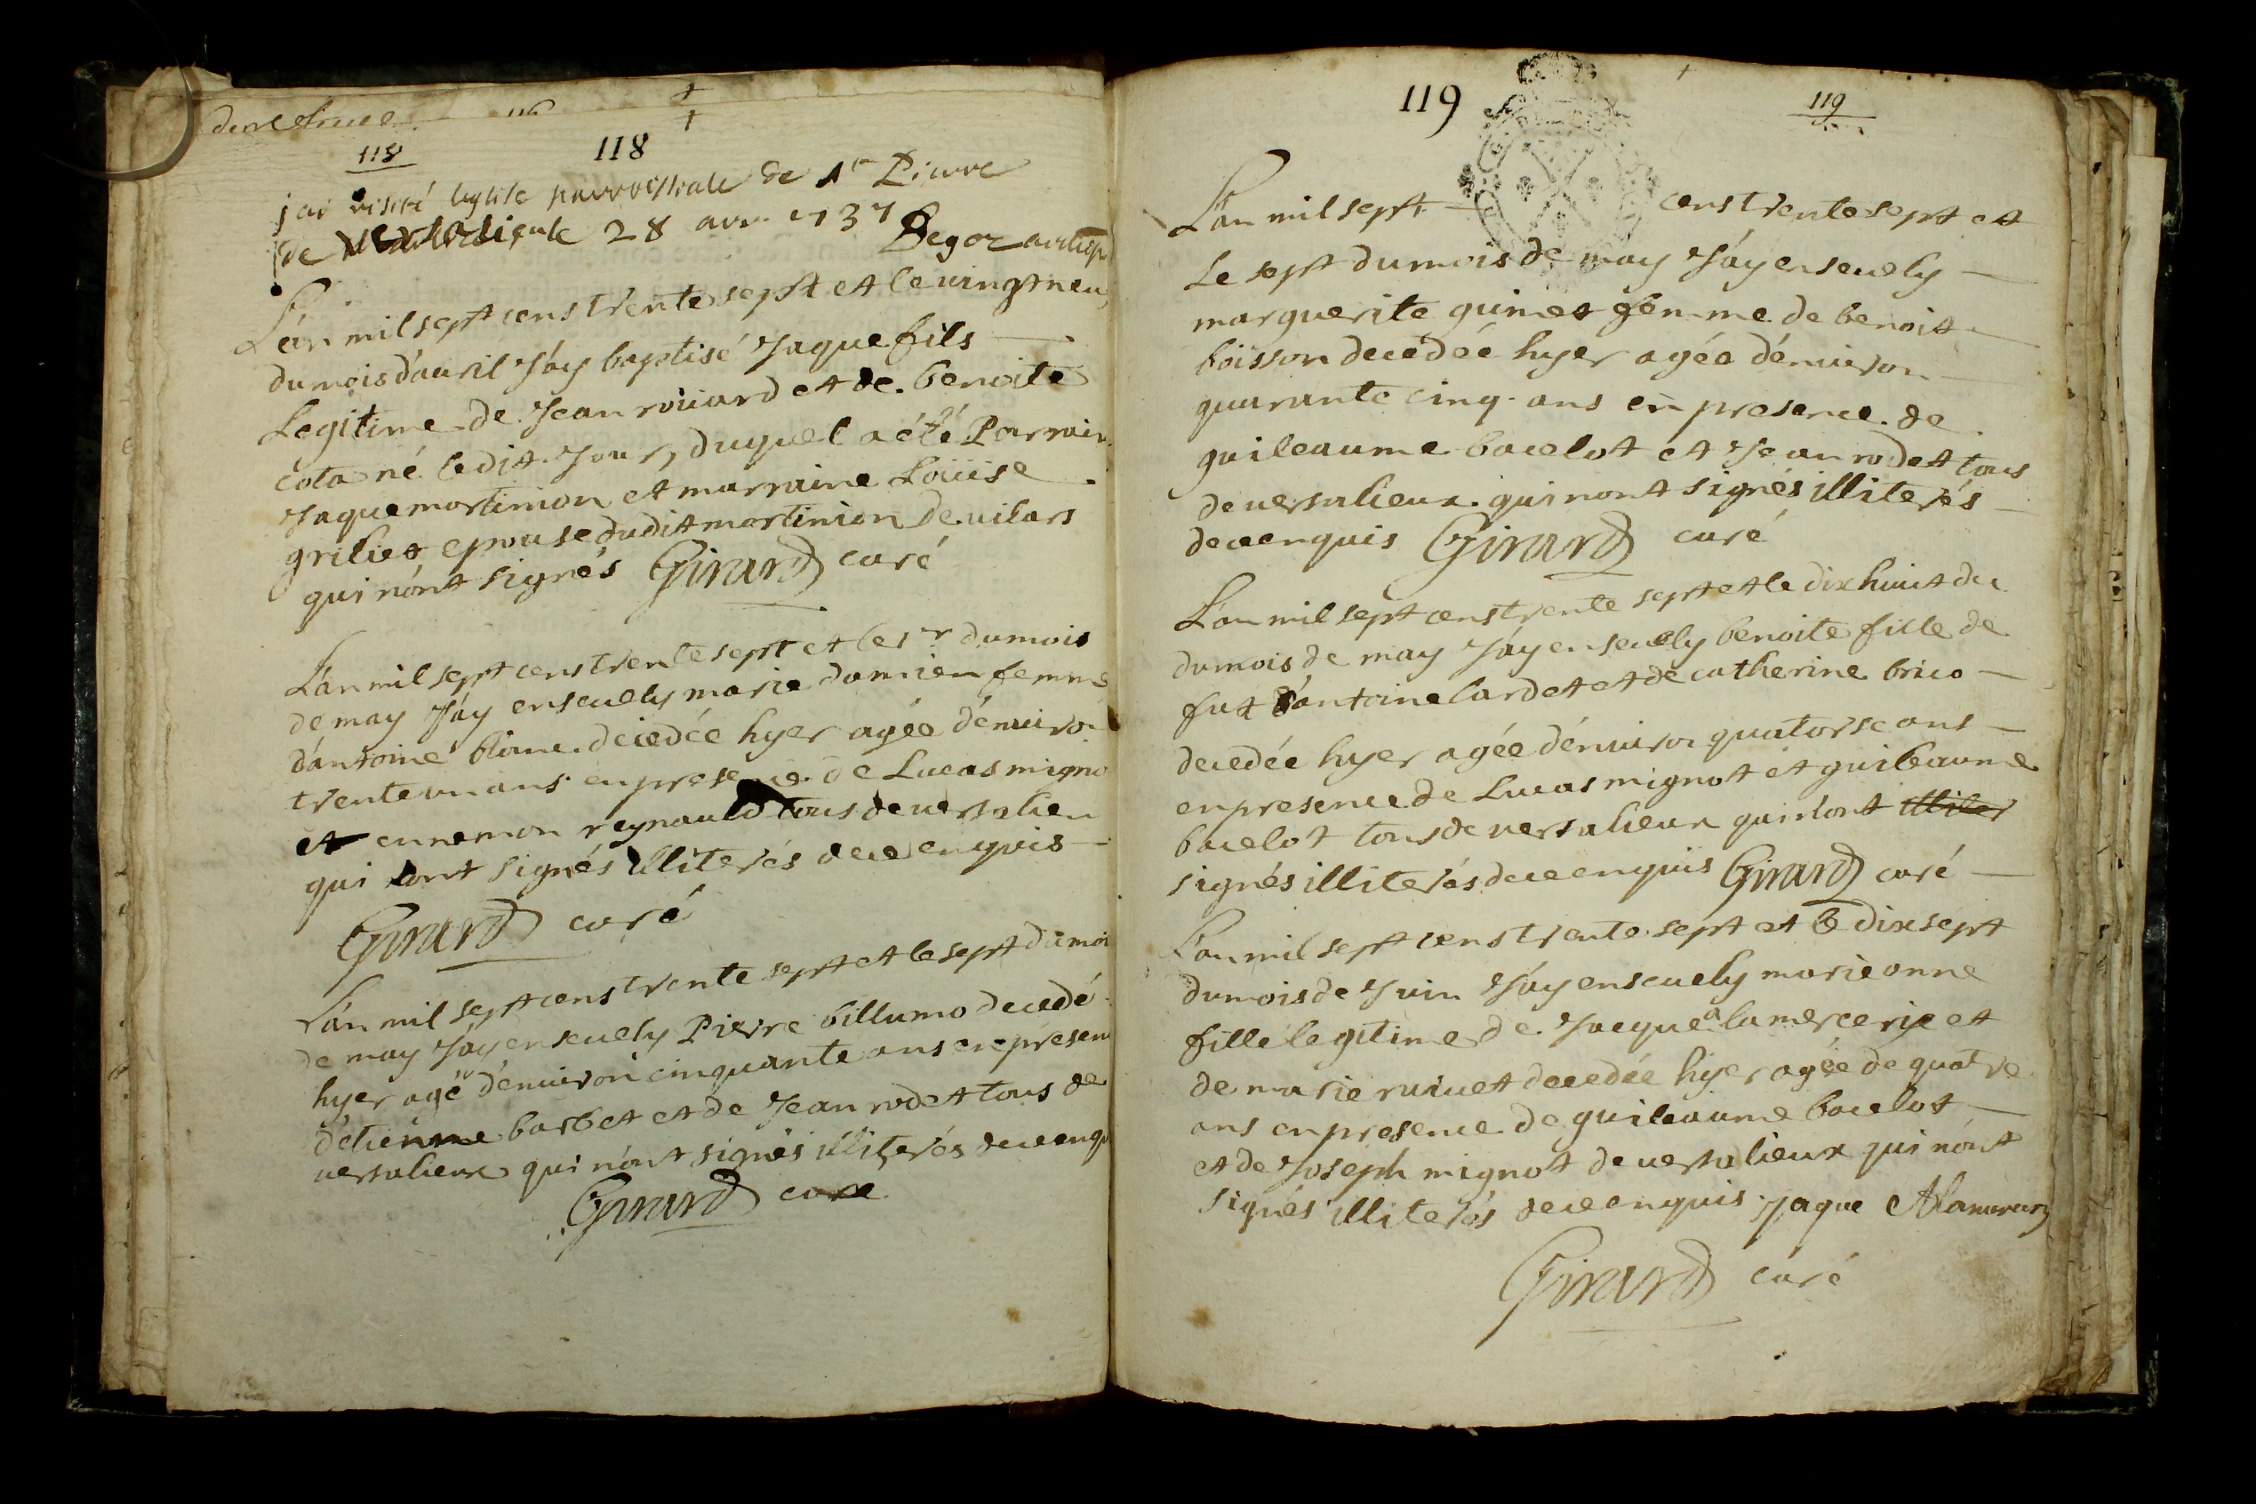 118
118
jai visité leglise parroissiale de St Pierre
de 28 avr 1737
Begoz archip
L'an mil sept cens trente sept et le uingt neu
du mois d'auril J'ay baptisé Jaque fils
Legitime de Jean roüard et de benoite
cota né ledit Jour, duquel a été Parrain
Jaque mortinion et marraine Loüise
griliet epouse dudit mortinion de uilars
qui n'ont signés Girard curé
L'an mil sept cens trente sept et le 1r du mois
de may J'ay enseuely marie damien femme
d'antoine blanc decedée hyer agée d'enuiron
trente un ans en presence de Lucas migno
et ennemon reynauld tous de uersalieu
qui n'ont signés illiterés de ce enquis
Girard curé
L'an mil sept cens trente sept et le sept du moi
de may J'ay enseuely Pierre billumo decedé
hyer agé d'enuiron cinquante ans en presen
d'etienne barbet et de Jean rodet tous de
uersalieux qui n'ont signés illiterés de ce enqu
Girard curé
119
119
L'an mil sept cens trente sept et
Le sept du mois de may J'ay enseuely
marguerite guinet femme de benoit
boisson decedée hyer agée d'enuiron
quarante cinq ans en presence de
guileaume bacelot et Jean rodet tous
de uersalieux qui n'ont signés illiterés
de ce enquis Girard curé
L'an mil sept cens trente sept et le dix huict du
du mois de may J'ay enseuely benoite fille de
fut d'antoine lardet et de catherine brico
decedée hyer agée d'enuiron quatorse ans
en presence de Lucas mignot et guileaume
bacelot tous de uersalieux qui n'ont illiter
signés illiterés de ce enquis Girard curé
L'an mil sept cens trente sept et le dix sept
du mois de Juin J'ay enseuely marie anne
fille legitime de Jacque a lamercerie et
de marie ruiuet decedée hyer agée de quatre
ans en presence de guileaume bacelot
et de Joseph mignot de uersalieux qui n'ont
signés illiterés de ce enquis Jaque
Girard curé